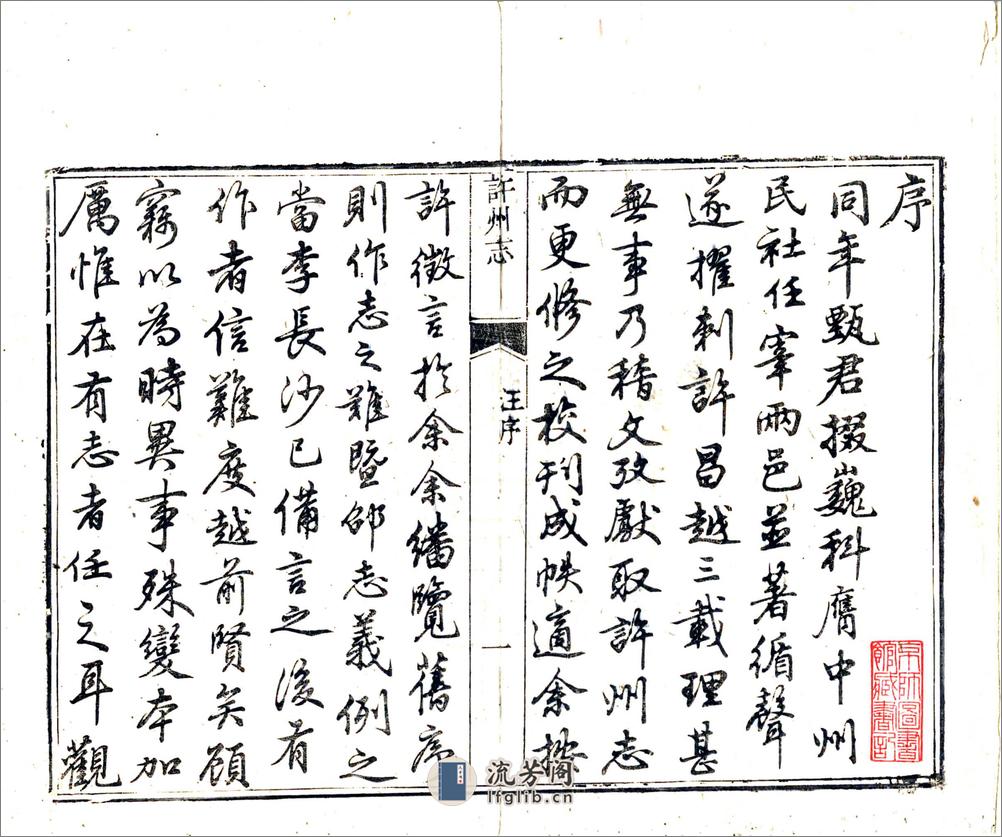 序
同年甄君掇巍科膺中州
民社任宰兩邑並著循聲
遂擢刺許昌越三載理甚
無事乃稽文攷獻取許州志
而更修之校刊成帙適余撡
許州志
汪序
一
許徵言於余余繙覽舊序
則作志之難暨邵志義例之
當李長沙已備言之後有
作者信難度越前賢矣顧
竊以為時異事殊變本加
厲惟在有志者任之耳觀
京師圖書
館藏書記
流芳阁
lfglib.cn